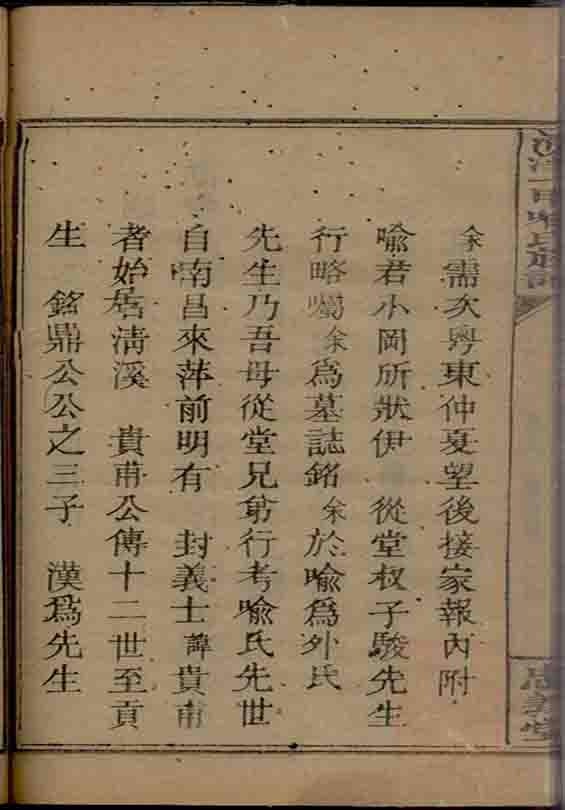 喻氏族譜
余需次粵東仲夏望後接家報內附
喻君小岡所狀伊 從堂叔子駿先生
行略囑余爲墓誌銘余於喻爲外氏
先生乃吾母從堂兄弟行考喻氏先世
自南昌來萍前明有 封義士諱貴甫
者始居清溪 貴甫公傳十二世至貢
生 銘鼎公公之三子 漢爲先生